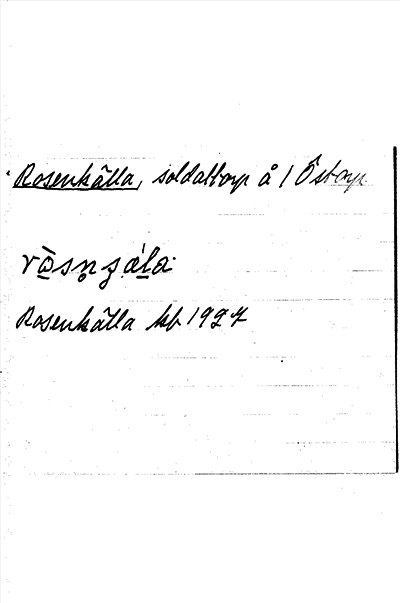 Rosenkälla, soldattorp å 1 Östorp
Rosenkälla kb 1927